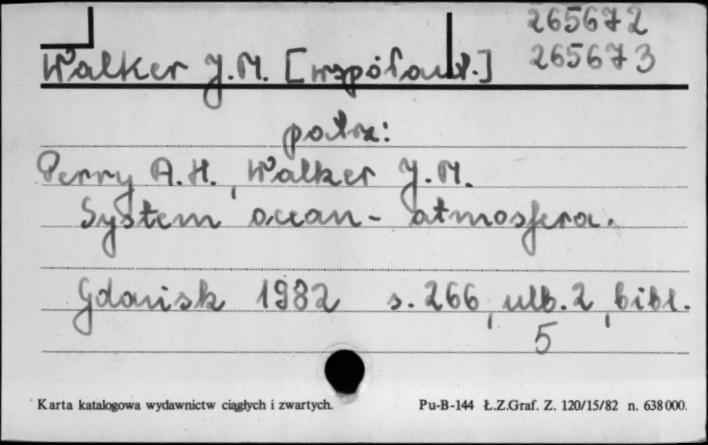 265672
Walker J.M. [współaut.] 265673
patrz:
Perry A.H., Walker J.M.
System ocean - atmosfera.
Gdańsk 1982 s. 266, ulb. 2, bibl.
5
Karta katalogowa wydawnictw ciągłych i zwartych. Pu-B-144 Ł.Z.Graf. Z. 120/15/82 n. 638000.